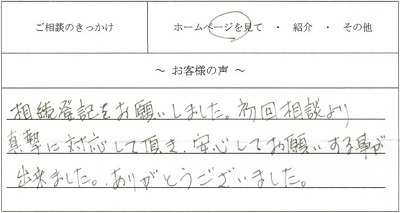 ご相談のきっかけ
ホームページを見て ・ 紹介 ・ その他
～ お客様の声 ～
相続登記をお願いしました。初回相談より
真摯に対応して頂き、安心してお願いする事が
出来ました。ありがとうございました。